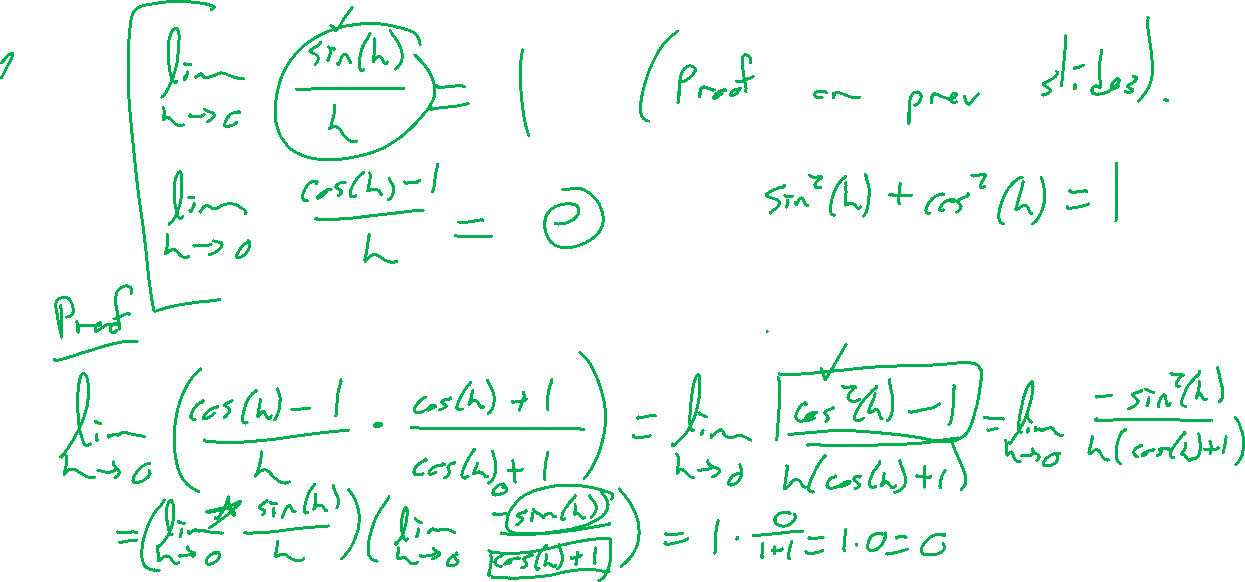 lim h→0 sin(h)/h = 1 (Proof on prev slides).
lim h→0 (cos(h)-1)/h = 0 sin²(h) + cos²(h) = 1
Proof
lim h→0 ((cos(h)-1)/h · (cos(h)+1)/(cos(h)+1)) = lim h→0 (cos²(h)-1)/(h(cos(h)+1)) = lim h→0 (-sin²(h))/(h(cos(h)+1))
= (lim h→0 sin(h)/h)(lim h→0 (-sin(h))/(cos(h)+1)) = 1 · 0/(1+1) = 1·0 = 0